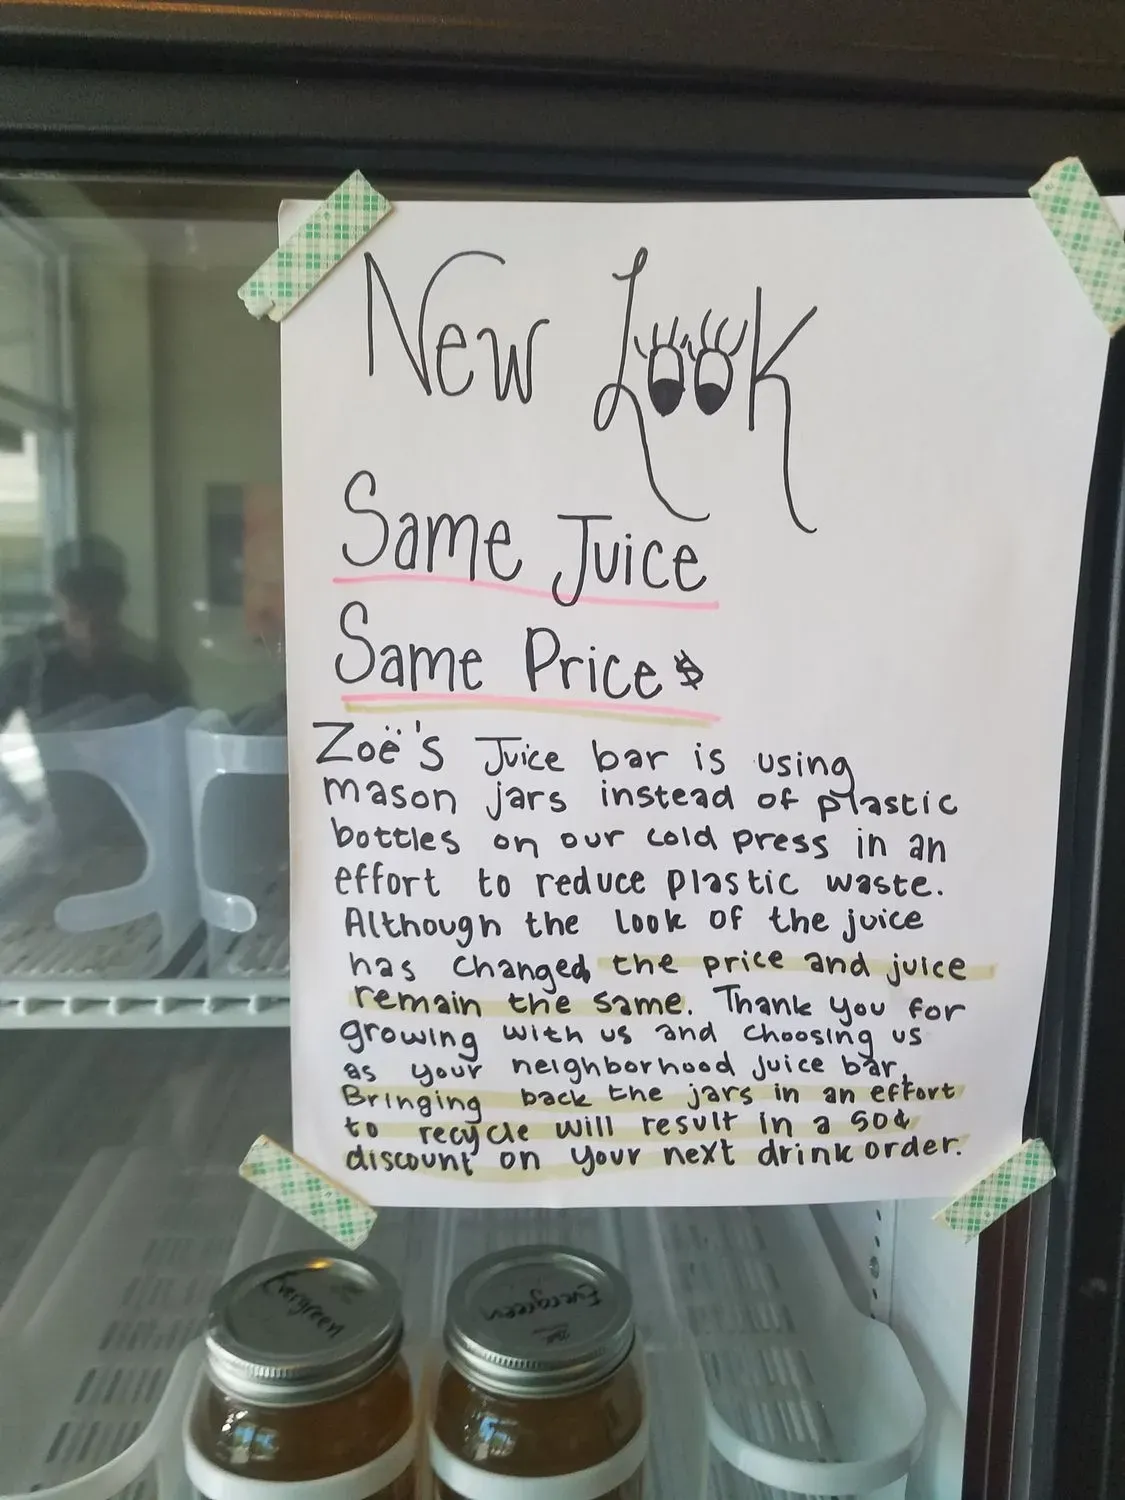 New Look
Same Juice
Same Price $
Zoë's Juice bar is using
mason jars instead of plastic
bottles on our cold press in an
effort to reduce plastic waste.
Although the look of the juice
has changed, the price and juice
remain the same. Thank you for
growing with us and choosing us
as your neighborhood juice bar.
Bringing back the jars in an effort
to recycle will result in a 50¢
discount on your next drink order.
Evergreen
Evergreen